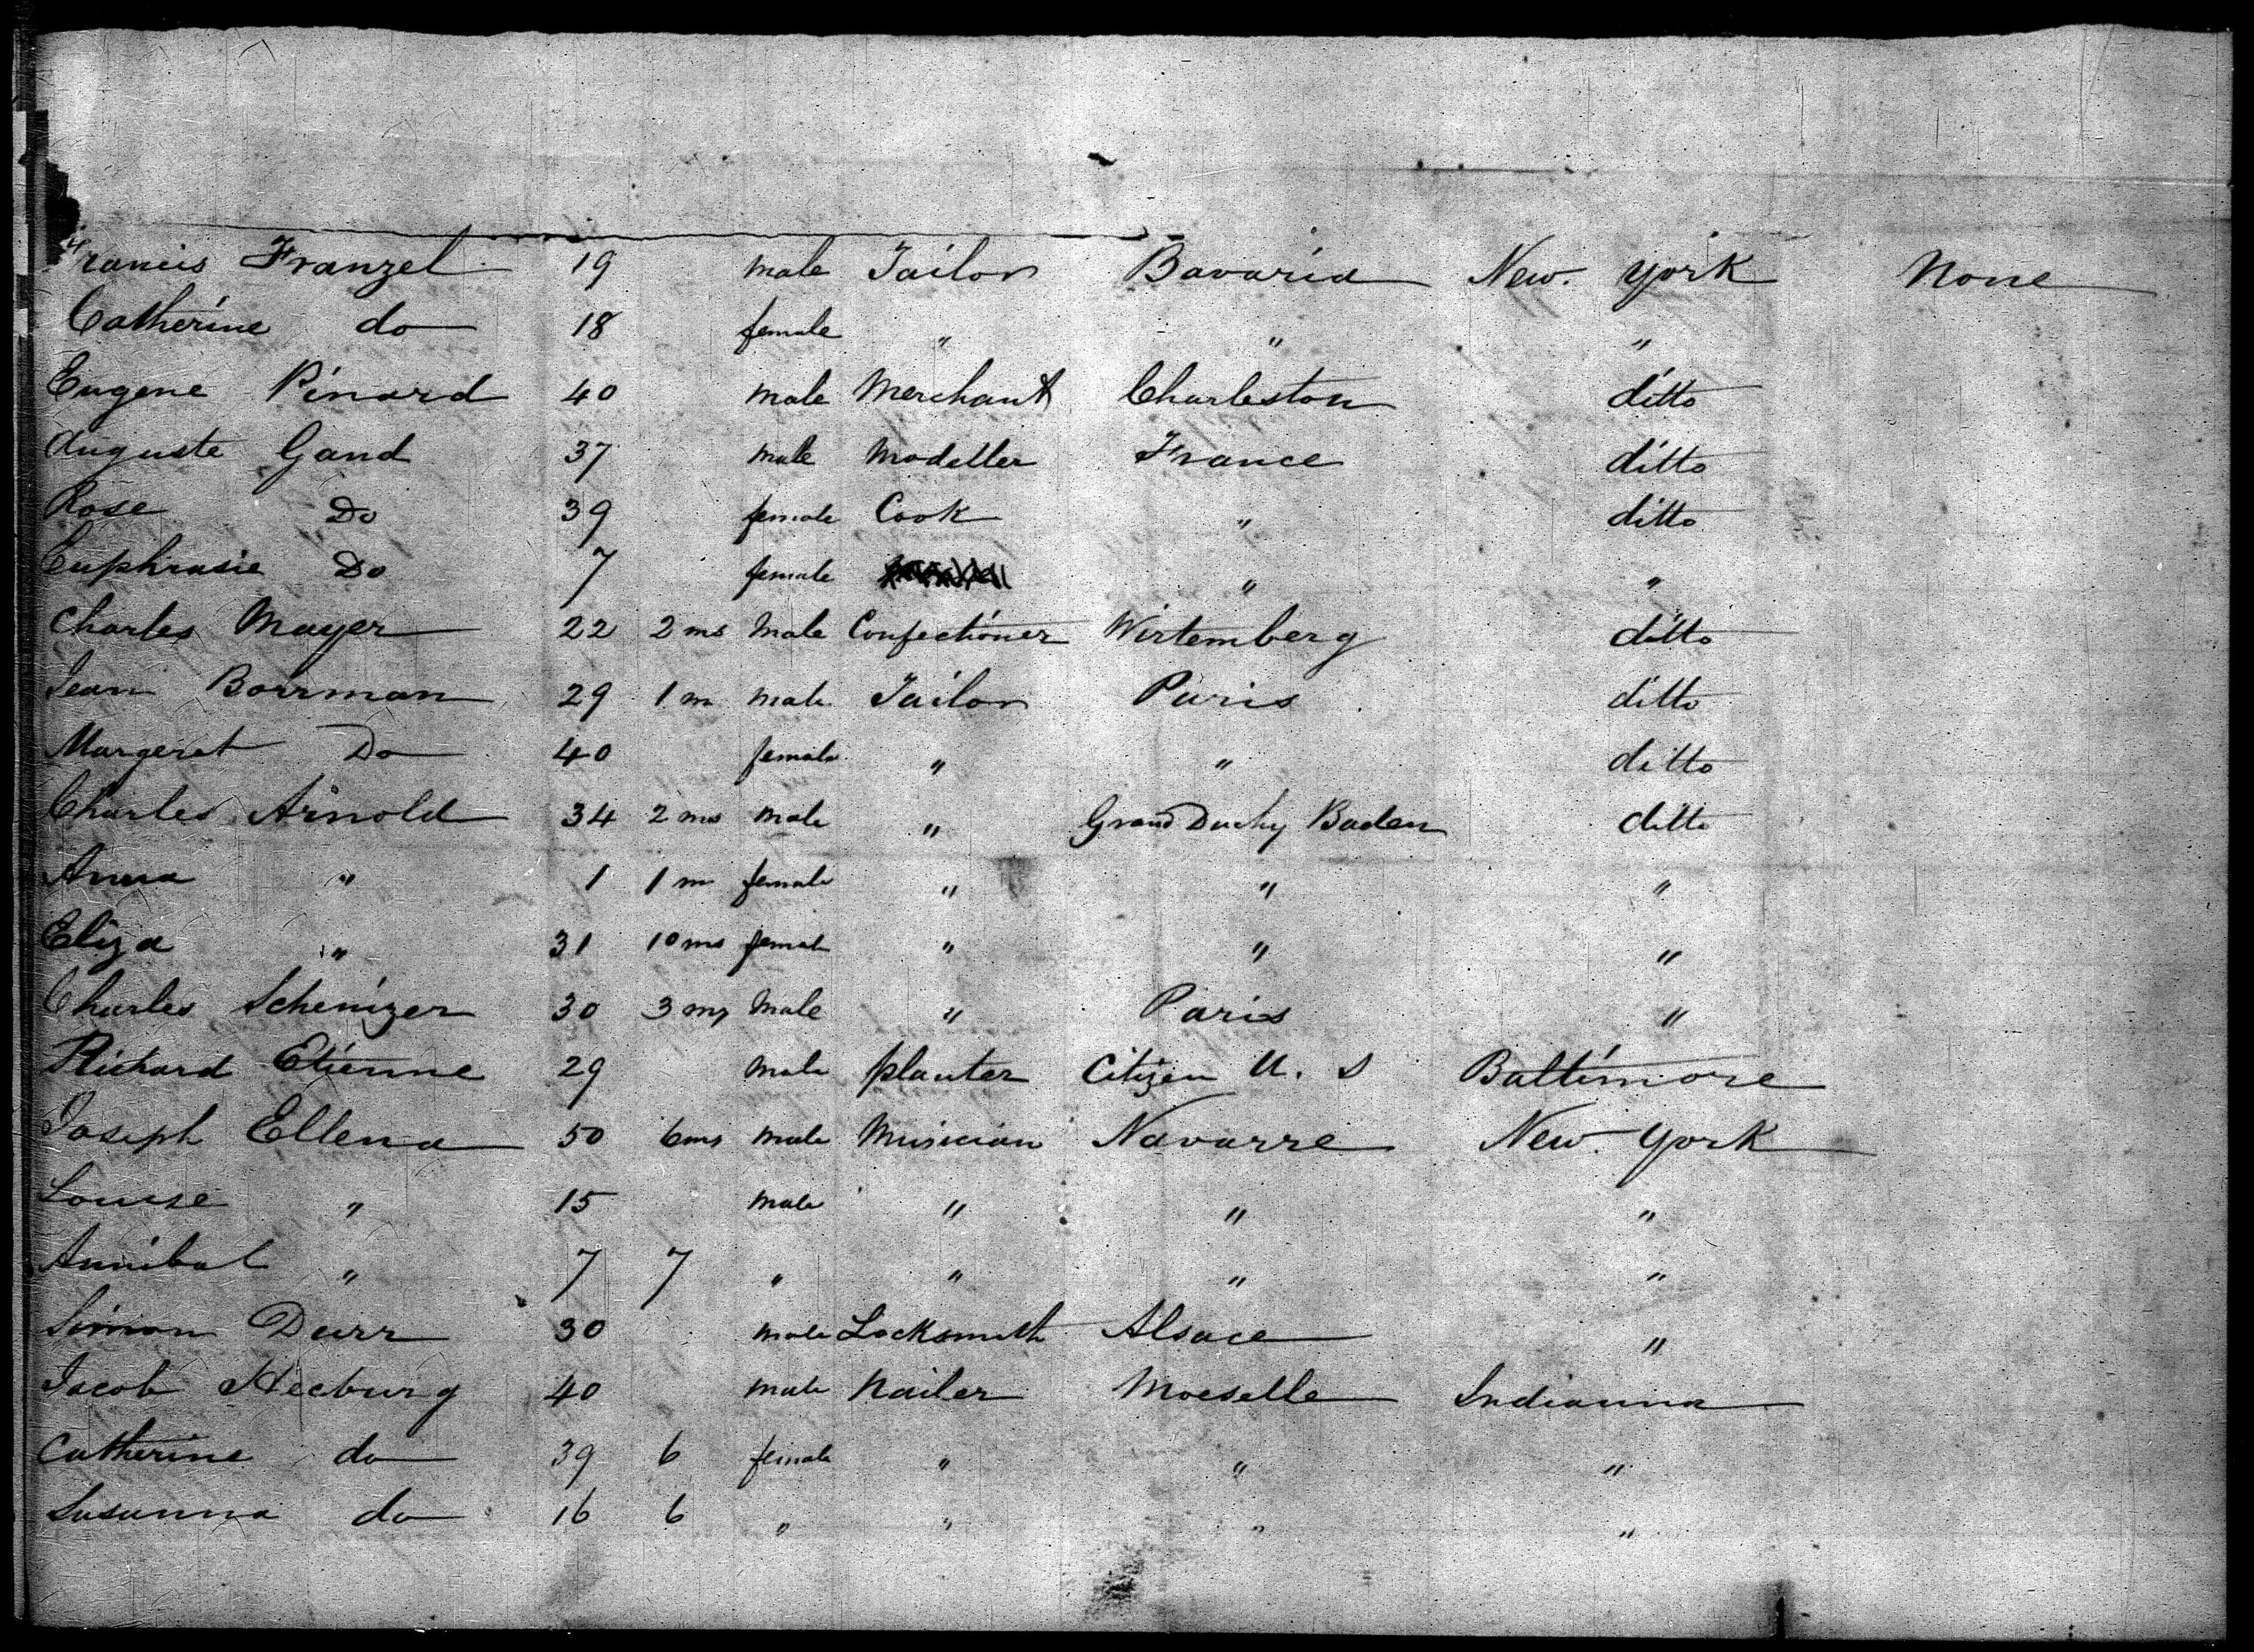 Francis Franzel 19 male Tailor Bavaria New. York None
Catherine do 18 female " " "
Eugene Pinard 40 male Merchant Charleston ditto
Auguste Gand 37 male Modeller France ditto
Rose Do 39 female Cook " ditto
Euphrasie Do 7 female " "
Charles Mayer 22 2 ms Male Confectioner Wirtemberg ditto
Jean Borrman 29 1 m male Tailor Paris ditto
Margeret Do 40 female " " ditto
Charles Arnold 34 2 ms male " Grand Duchy Baden ditto
Anna " 1 1 m female " " "
Eliza " 31 10 ms female " " "
Charles Schenizer 30 3 ms Male " Paris "
Richard Etienne 29 male planter Citizen U. S Baltimore
Joseph Ellena 50 6 ms male Musician Navarre New York
Louise " 15 male " " "
Annibal " 7 7 " " " "
Simon Durr 30 male Locksmith Alsace "
Jacob Hecburg 40 male Nailer Moeselle Indianna
Catherine do 39 6 female " " "
Susanna do 16 6 " " " "